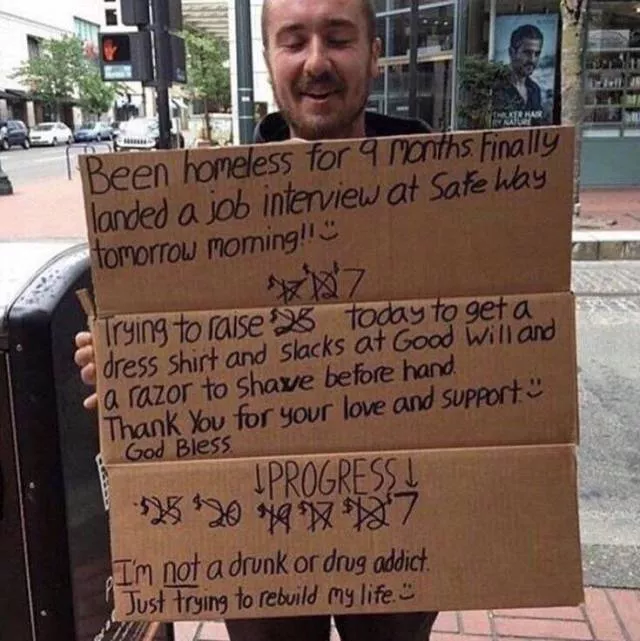 THICKER HAIR
BY NATURE
Been homeless for 9 months. Finally
landed a job interview at Safe Way
tomorrow morning!!
7
Trying to raise $25 today to get a
dress shirt and slacks at Good Will and
a razor to shave before hand.
Thank You for your love and support.
God Bless
↓PROGRESS↓
$25 $20 $19 $17 $12 7
I'm not a drunk or drug addict.
Just trying to rebuild my life.